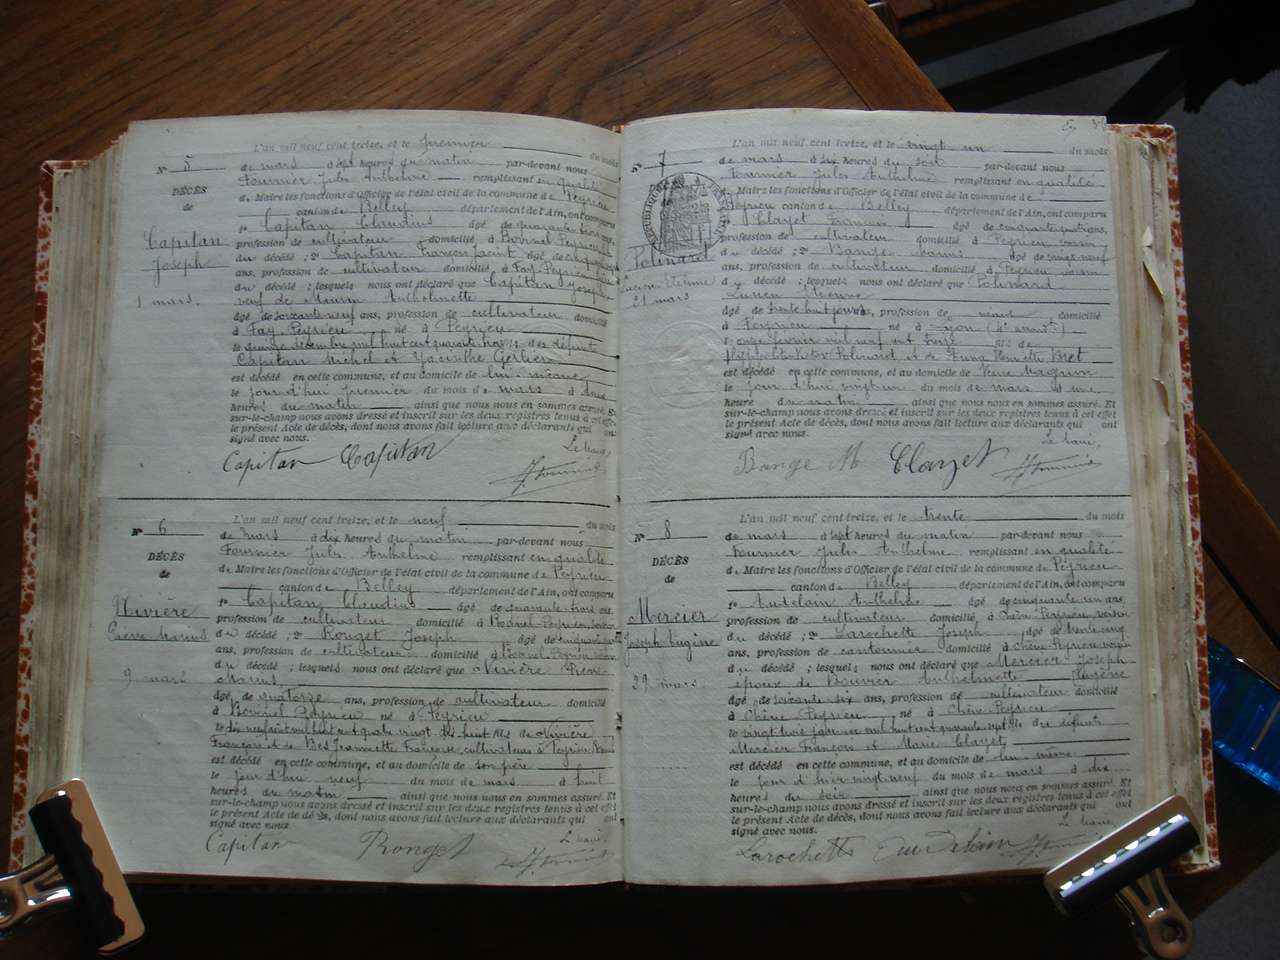 L'an mil neuf cent treize, et le premier du mois
N° 5 de mars à sept heures du matin par-devant nous
DÉCÈS
de
Fournier Jules Anthelme remplissant en qualité
de Maire les fonctions d'Officier de l'état civil de la commune de Peyrieu
canton de Belley département de l'Ain, ont comparu
Capitan
Joseph
1 mars.
1° Capitan Claudius âgé de quarante trois ans,
profession de cultivateur domicilié à Bovinel Peyrieu
du décédé ; 2° Capitan François âgé de
ans, profession de cultivateur domicilié à Fay Peyrieu
du décédé ; lesquels nous ont déclaré que Capitan Joseph
veuf de Maurin Anthelmette
âgé de soixante neuf ans, profession de cultivateur domicilié
à Fay Peyrieu né à Peyrieu
le quinze décembre mil huit cent quarante trois fils des défunts
Capitan Michel et Hyacinthe Gerlier
est décédé en cette commune, et au domicile de lui-même
le jour d'hui premier du mois de mars à deux
heures du matin ainsi que nous nous en sommes assuré. Et
sur-le-champ nous avons dressé et inscrit sur les deux registres tenus à cet effet
le présent Acte de décès, dont nous avons fait lecture aux déclarants qui ont
signé avec nous.
Le maire,
Capitan Capitan JFournier
L'an mil neuf cent treize, et le neuf du mois
N° 6 de mars à dix heures du matin par-devant nous
DÉCÈS
de
Fournier Jules Anthelme remplissant en qualité
de Maire les fonctions d'Officier de l'état civil de la commune de Peyrieu
canton de Belley département de l'Ain, ont comparu
Vivière
Pierre Marius
9 mars
1° Capitan Claudius âgé de quarante trois ans,
profession de cultivateur domicilié à Bovinel Peyrieu voisin
du décédé ; 2° Rouget Joseph âgé de
ans, profession de cultivateur domicilié à Bovinel Peyrieu voisin
du décédé ; lesquels nous ont déclaré que Vivière Pierre
Marius
âgé de quatorze ans, profession de cultivateur domicilié
à Bovinel Peyrieu né à Peyrieu
le dix neuf août mil huit cent quatre vingt dix huit fils de Vivière
François et de Bes Jeannette Françoise, cultivateurs à Peyrieu
est décédé en cette commune, et au domicile de son père
le jour d'hui neuf du mois de mars à huit
heures du matin ainsi que nous nous en sommes assuré. Et
sur-le-champ nous avons dressé et inscrit sur les deux registres tenus à cet effet
le présent Acte de décès, dont nous avons fait lecture aux déclarants qui ont
signé avec nous.
Le maire,
Capitan Rouget JFournier
L'an mil neuf cent treize, et le vingt un du mois
N° 7 de mars à six heures du soir par-devant nous
Fournier Jules Anthelme remplissant en qualité
de Maire les fonctions d'Officier de l'état civil de la commune de
Peyrieu canton de Belley département de l'Ain, ont comparu
Polinard
Lucien Etienne
21 mars
1° Clayet âgé de cinquante quatre ans,
profession de cultivateur domicilié à Peyrieu voisin
du décédé ; 2° Bange Marius âgé de vingt neuf
ans, profession de cultivateur domicilié à Peyrieu voisin
du décédé ; lesquels nous ont déclaré que Polinard
Lucien Etienne
âgé de trente huit jours, profession de néant domicilié
à Peyrieu né à Lyon
le onze février mil neuf cent treize fils de
Polinard et de Bret
est décédé en cette commune, et au domicile de Magnin
le jour d'hui vingt un du mois de mars à une
heure du matin ainsi que nous nous en sommes assuré. Et
sur-le-champ nous avons dressé et inscrit sur les deux registres tenus à cet effet
le présent Acte de décès, dont nous avons fait lecture aux déclarants qui ont
signé avec nous.
Le maire,
Bange M Clayet JFournier
L'an mil neuf cent treize, et le trente du mois
N° 8 de mars à sept heures du matin par-devant nous
DÉCÈS
de
Fournier Jules Anthelme remplissant en qualité
de Maire les fonctions d'Officier de l'état civil de la commune de Peyrieu
canton de Belley département de l'Ain, ont comparu
Mercier
Joseph Eugène
29 mars
1° Audelain Anthelme âgé de cinquante un ans,
profession de cultivateur domicilié à Chêne Peyrieu voisin
du décédé ; 2° Larochette Joseph âgé de trente cinq
ans, profession de cantonnier domicilié à Chêne Peyrieu voisin
du décédé ; lesquels nous ont déclaré que Mercier Joseph
Eugène
époux de Bouvier Anthelmette
âgé de soixante six ans, profession de cultivateur domicilié
à Chêne Peyrieu né à Chêne Peyrieu
le vingt trois janvier mil huit cent quarante sept fils des défunts
Mercier François et Marie Clayet
est décédé en cette commune, et au domicile de lui-même
le jour d'hier vingt neuf du mois de mars à dix
heures du soir ainsi que nous nous en sommes assuré. Et
sur-le-champ nous avons dressé et inscrit sur les deux registres tenus à cet effet
le présent Acte de décès, dont nous avons fait lecture aux déclarants qui ont
signé avec nous.
Le maire,
Larochette Audelain JFournier